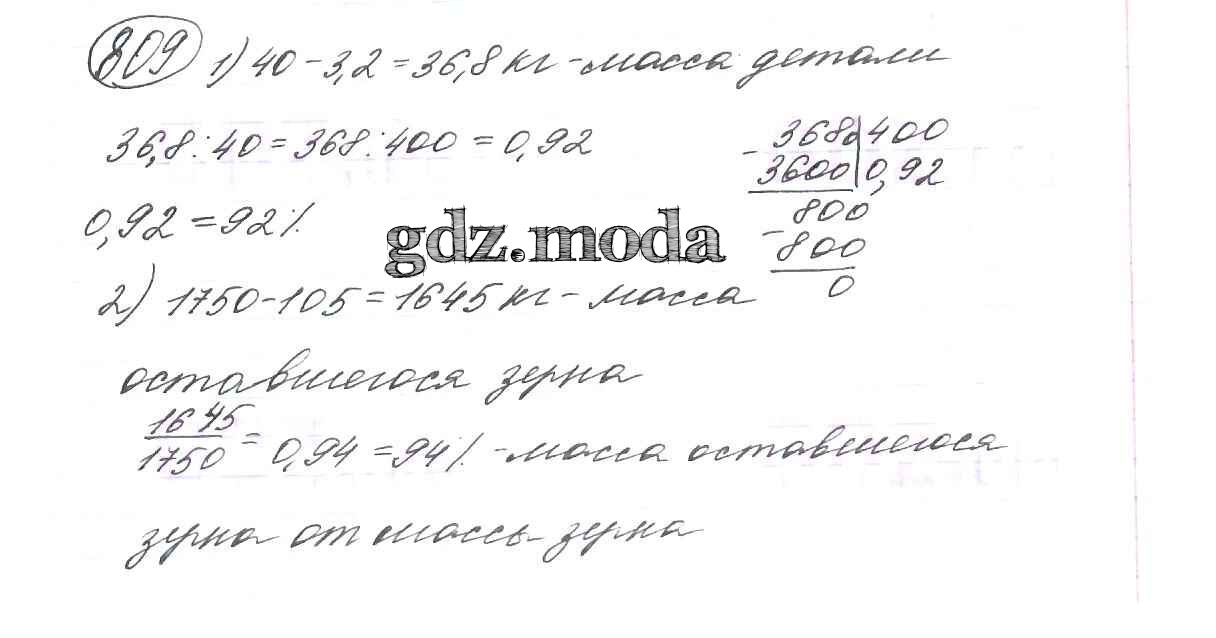 809 1) 40 - 3,2 = 36,8 кг - масса детали
36,8 : 40 = 368 : 400 = 0,92
0,92 = 92%
3680 400
- 3600 0,92
800
- 800
0
gdz.moda
2) 1750 - 105 = 1645 кг - масса
оставшегося зерна
1645/1750 = 0,94 = 94% - масса оставшегося
зерна от массы зерна